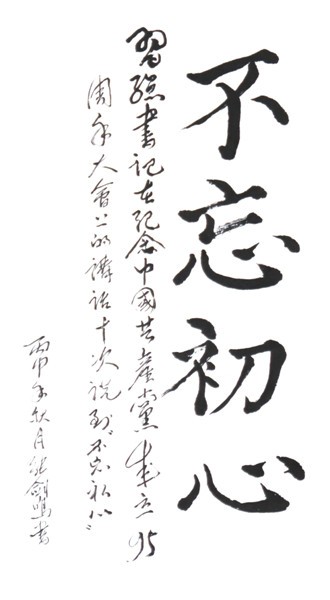 不忘初心
習總書記在紀念中國共產黨成立95
周年大會上的講話十次說到“不忘初心”
丙申年秋月張劍鳴書